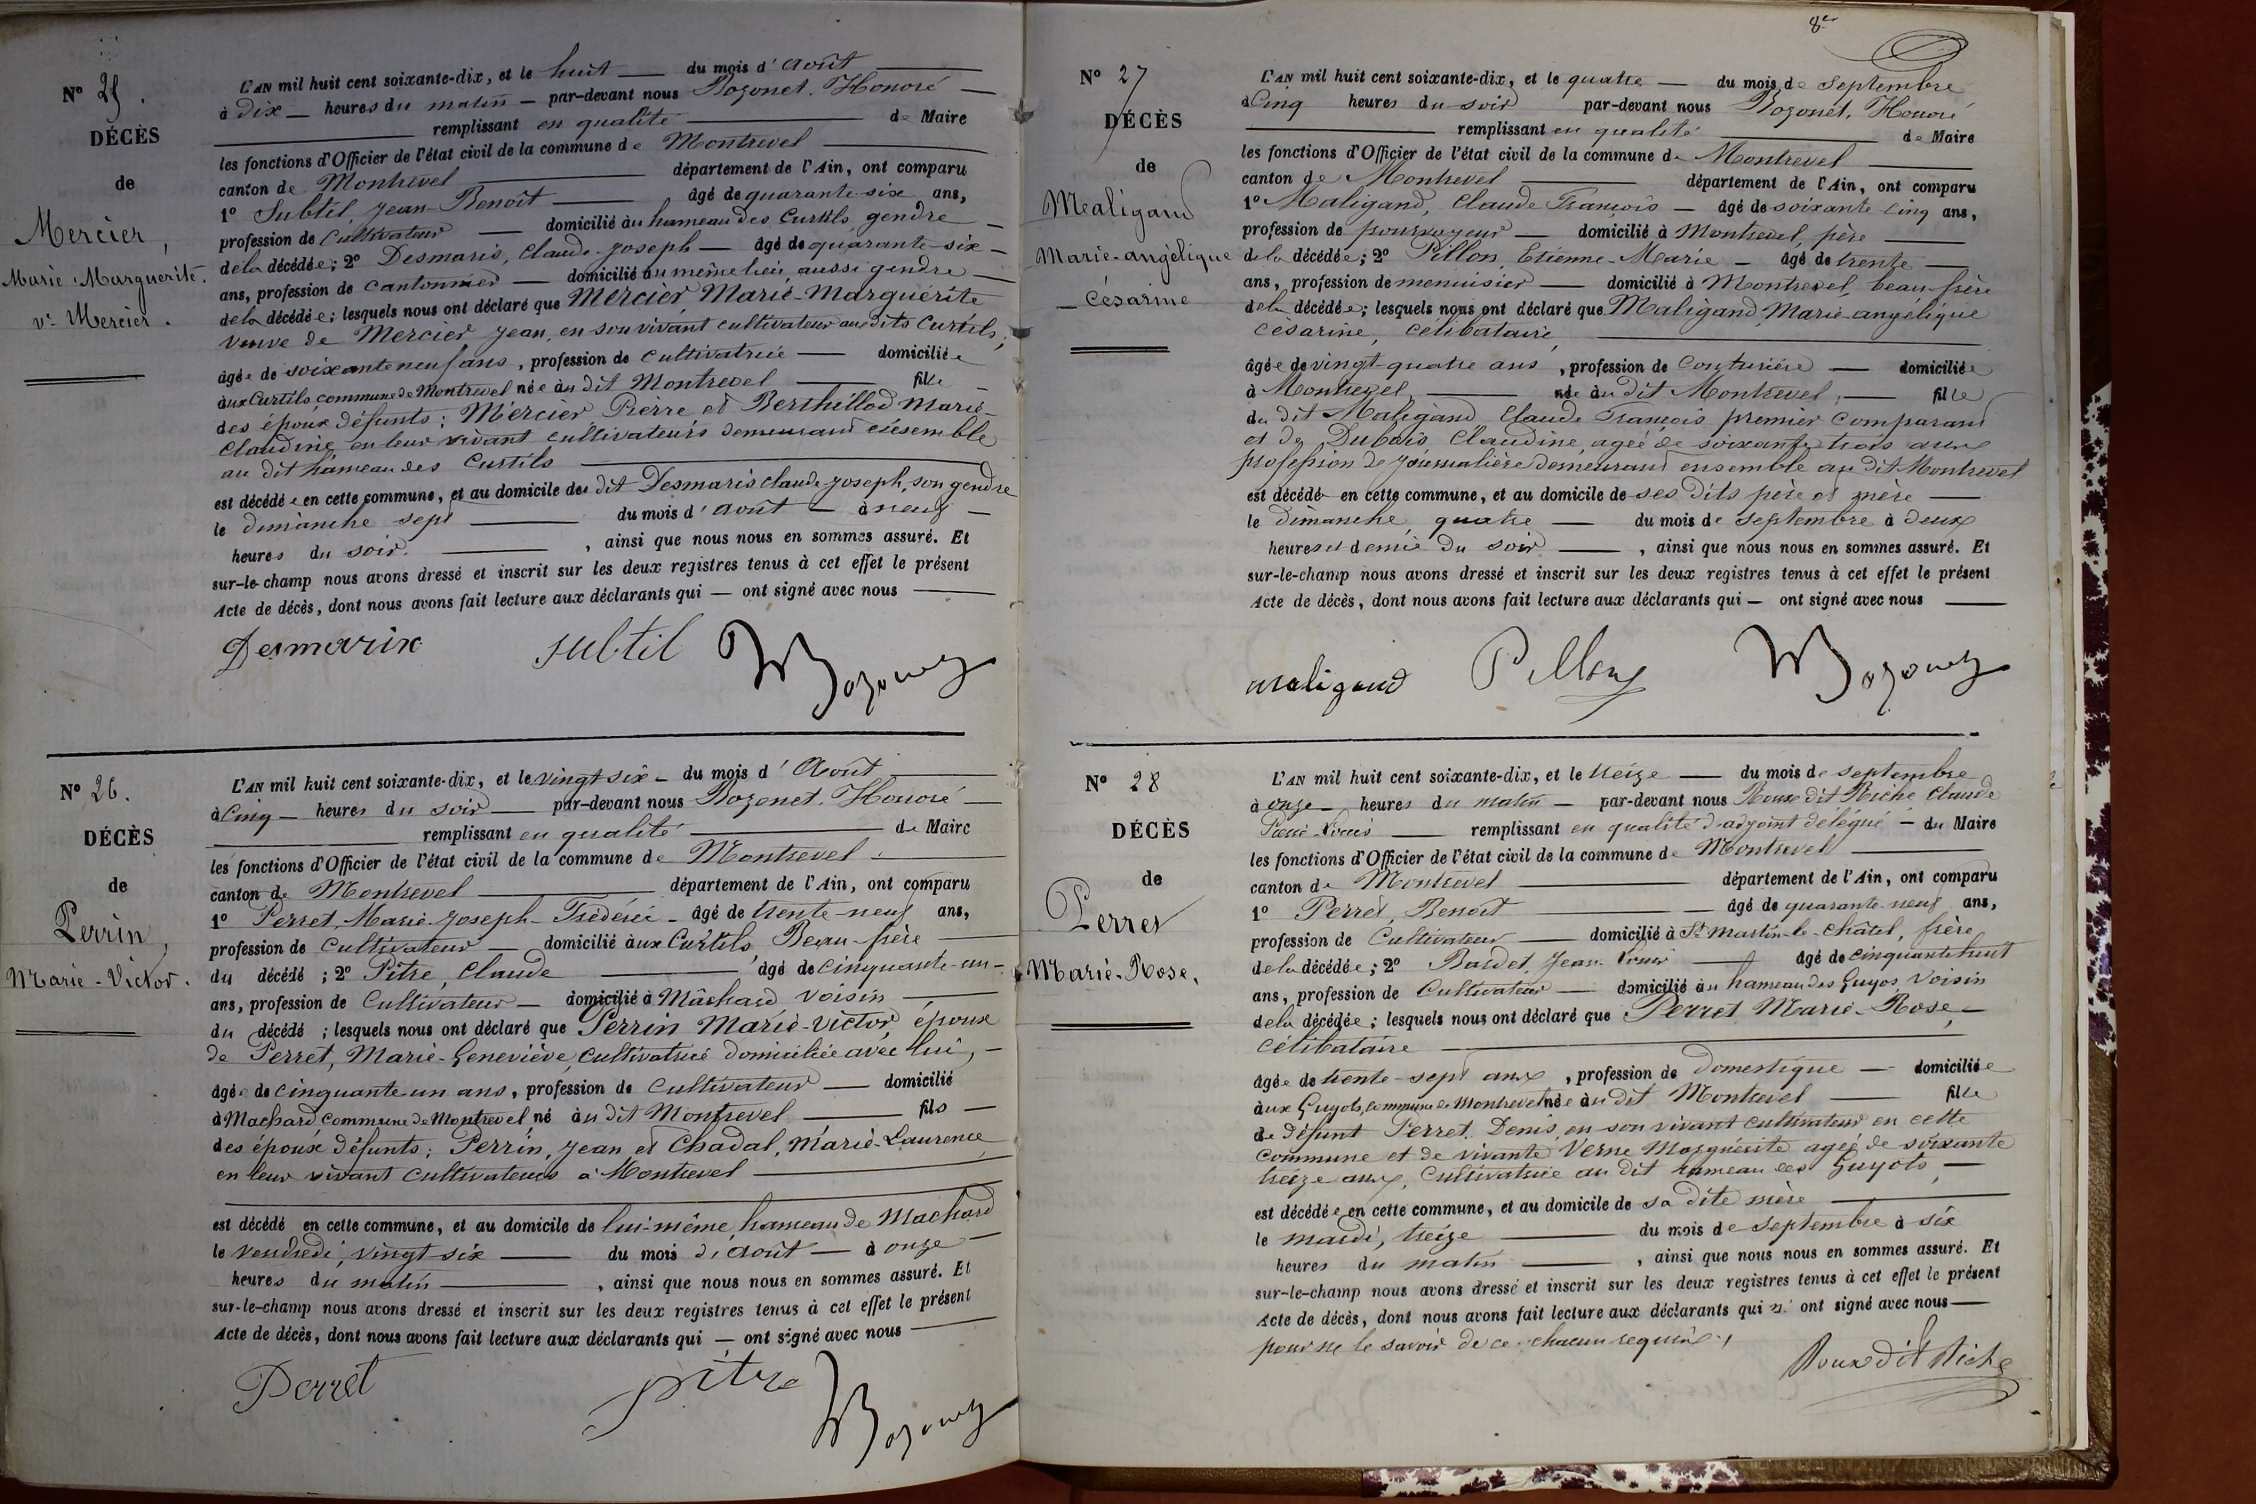 N° 25.
DÉCÈS
de
Mercier,
Marie Marguerite.
ve Mercier.
L'AN mil huit cent soixante-dix, et le huit — du mois d'août
à dix — heures du matin — par-devant nous Bozonet, Honoré
remplissant en qualité de Maire
les fonctions d'Officier de l'état civil de la commune de Montrevel
canton de Montrevel département de l'Ain, ont comparu
1° Subtil, Jean-Benoît âgé de quarante-six ans,
profession de cultivateur — domicilié au hameau des Curtils, gendre
de la décédée; 2° Desmaris, Claude-Joseph — âgé de quarante-six
ans, profession de cantonnier — domicilié au même lieu, aussi gendre
de la décédée; lesquels nous ont déclaré que Mercier Marie-Marguerite
veuve de Mercier Jean, en son vivant cultivateur aux dits Curtils,
âgée de soixante neuf ans, profession de cultivatrice — domiciliée
aux Curtils commune de Montrevel née au dit Montrevel fille
des époux défunts: Mercier Pierre et Berthillod Marie-
Claudine, en leur vivant cultivateurs demeurant ensemble
au dit hameau des Curtils
est décédée en cette commune, et au domicile du dit Desmaris Claude Joseph, son gendre
le dimanche sept du mois d'août — à neuf
heures du soir, ainsi que nous nous en sommes assuré. Et
sur-le-champ nous avons dressé et inscrit sur les deux registres tenus à cet effet le présent
Acte de décès, dont nous avons fait lecture aux déclarants qui — ont signé avec nous
Desmarix subtil Bozonet
N° 26.
DÉCÈS
de
Perrin,
Marie-Victor.
L'AN mil huit cent soixante-dix, et le vingt six — du mois d'Août
à cinq — heures du soir — par-devant nous Bozonet, Honoré
remplissant en qualité de Maire
les fonctions d'Officier de l'état civil de la commune de Montrevel
canton de Montrevel département de l'Ain, ont comparu
1° Perret, Marie-Joseph-Frédéric — âgé de trente-neuf ans,
profession de cultivateur — domicilié aux Curtils Beau-frère
du décédé; 2° Pitre, Claude âgé de cinquante-un
ans, profession de cultivateur — domicilié à Mâchard voisin
du décédé; lesquels nous ont déclaré que Perrin Marie-Victor, époux
de Perret, Marie-Geneviève, cultivatrice domiciliée avec lui,
âgé de cinquante un ans, profession de cultivateur — domicilié
à Machard, commune de Montrevel né au dit Montrevel fils
des époux défunts; Perrin, Jean et Chadal, Marie-Laurence
en leur vivant cultivateurs à Montrevel
est décédé en cette commune, et au domicile de lui-même, hameau de Machard
le vendredi, vingt six du mois d'août — à onze
heures du matin, ainsi que nous nous en sommes assuré. Et
sur-le-champ nous avons dressé et inscrit sur les deux registres tenus à cet effet le présent
Acte de décès, dont nous avons fait lecture aux déclarants qui — ont signé avec nous
Perret pitre Bozonet
8e
N° 27
DÉCÈS
de
Maligand
Marie-angélique
Césarine
L'AN mil huit cent soixante-dix, et le quatre — du mois de septembre
à cinq heures du soir par-devant nous Bozonet, Honoré
remplissant en qualité de Maire
les fonctions d'Officier de l'état civil de la commune de Montrevel
canton de Montrevel département de l'Ain, ont comparu
1° Maligand, Claude François — âgé de soixante cinq ans,
profession de pourvoyeur — domicilié à Montrevel, père
de la décédée; 2° Pillon, Etienne-Marie — âgé de trente
ans, profession de menuisier — domicilié à Montrevel, beau-frère
de la décédée; lesquels nous ont déclaré que Maligand Marie-angélique
césarine, célibataire,
âgée de vingt-quatre ans, profession de couturière — domiciliée
à Montrevel née au dit Montrevel; fille
du dit Maligand Claude François premier comparant
et de Dubois Claudine, agée de soixante trois ans
profession de journalière demeurant ensemble au dit Montrevel
est décédée en cette commune, et au domicile de ses dits père et mère
le dimanche, quatre du mois de septembre à deux
heures et demie du soir, ainsi que nous nous en sommes assuré. Et
sur-le-champ nous avons dressé et inscrit sur les deux registres tenus à cet effet le présent
Acte de décès, dont nous avons fait lecture aux déclarants qui — ont signé avec nous
maligand Pillon Bozonet
N° 28
DÉCÈS
de
Perret
Marie-Rose.
L'AN mil huit cent soixante-dix, et le treize — du mois de septembre
à onze — heures du matin — par-devant nous Roux dit Riche Claude
remplissant en qualité d'adjoint délégué — du Maire
les fonctions d'Officier de l'état civil de la commune de Montrevel
canton de Montrevel département de l'Ain, ont comparu
1° Perret, Benoît âgé de quarante-neuf ans,
profession de Cultivateur — domicilié à St martin-le-châtel, frère
de la décédée; 2° Bardet, Jean âgé de cinquante huit
ans, profession de Cultivateur — domicilié au hameau des Guyots, voisin
de la décédée; lesquels nous ont déclaré que Perret Marie-Rose,
célibataire
âgée de trente-sept ans, profession de domestique — domiciliée
aux Guyots, commune de Montrevel née au dit Montrevel fille
de défunt Perret Denis en son vivant cultivateur en cette
commune et de vivante Verne Marguerite agée de soixante
treize ans, cultivatrice au dit hameau des Guyots,
est décédée en cette commune, et au domicile de sa dite mère
le mardi, treize du mois de septembre à six
heures du matin, ainsi que nous nous en sommes assuré. Et
sur-le-champ nous avons dressé et inscrit sur les deux registres tenus à cet effet le présent
Acte de décès, dont nous avons fait lecture aux déclarants qui n' ont signé avec nous
pour ne le savoir de ce chacun requis.
Roux dit Riche